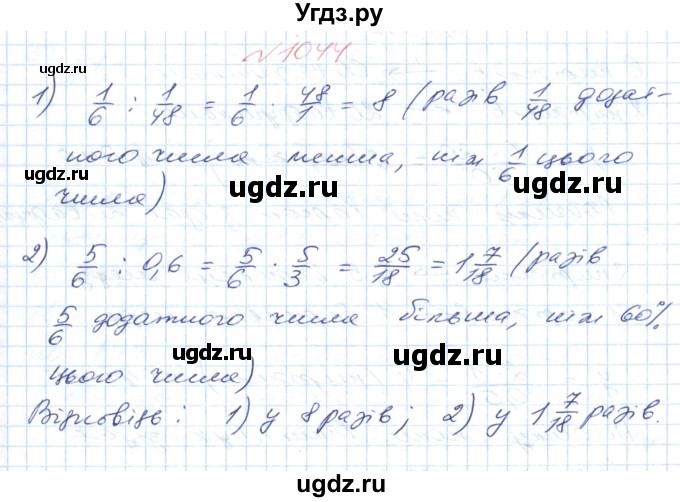 Угдз.ру
№1044
ugdz.ru ugdz.ru
1) 1/6 : 1/48 = 1/6 · 48/1 = 8 (разів 1/48 додат-
ного числа менша, ніж 1/6 цього
ugdz.ru ugdz.ru ugdz.ru
числа)
2) 5/6 : 0,6 = 5/6 · 5/3 = 25/18 = 1 7/18 (разів
5/6 додатного числа більша, ніж 60%
ugdz.ru ugdz.ru
цього числа)
Відповідь: 1) у 8 разів; 2) у 1 7/18 разів.
ugdz.ru ugdz.ru ugdz.ru